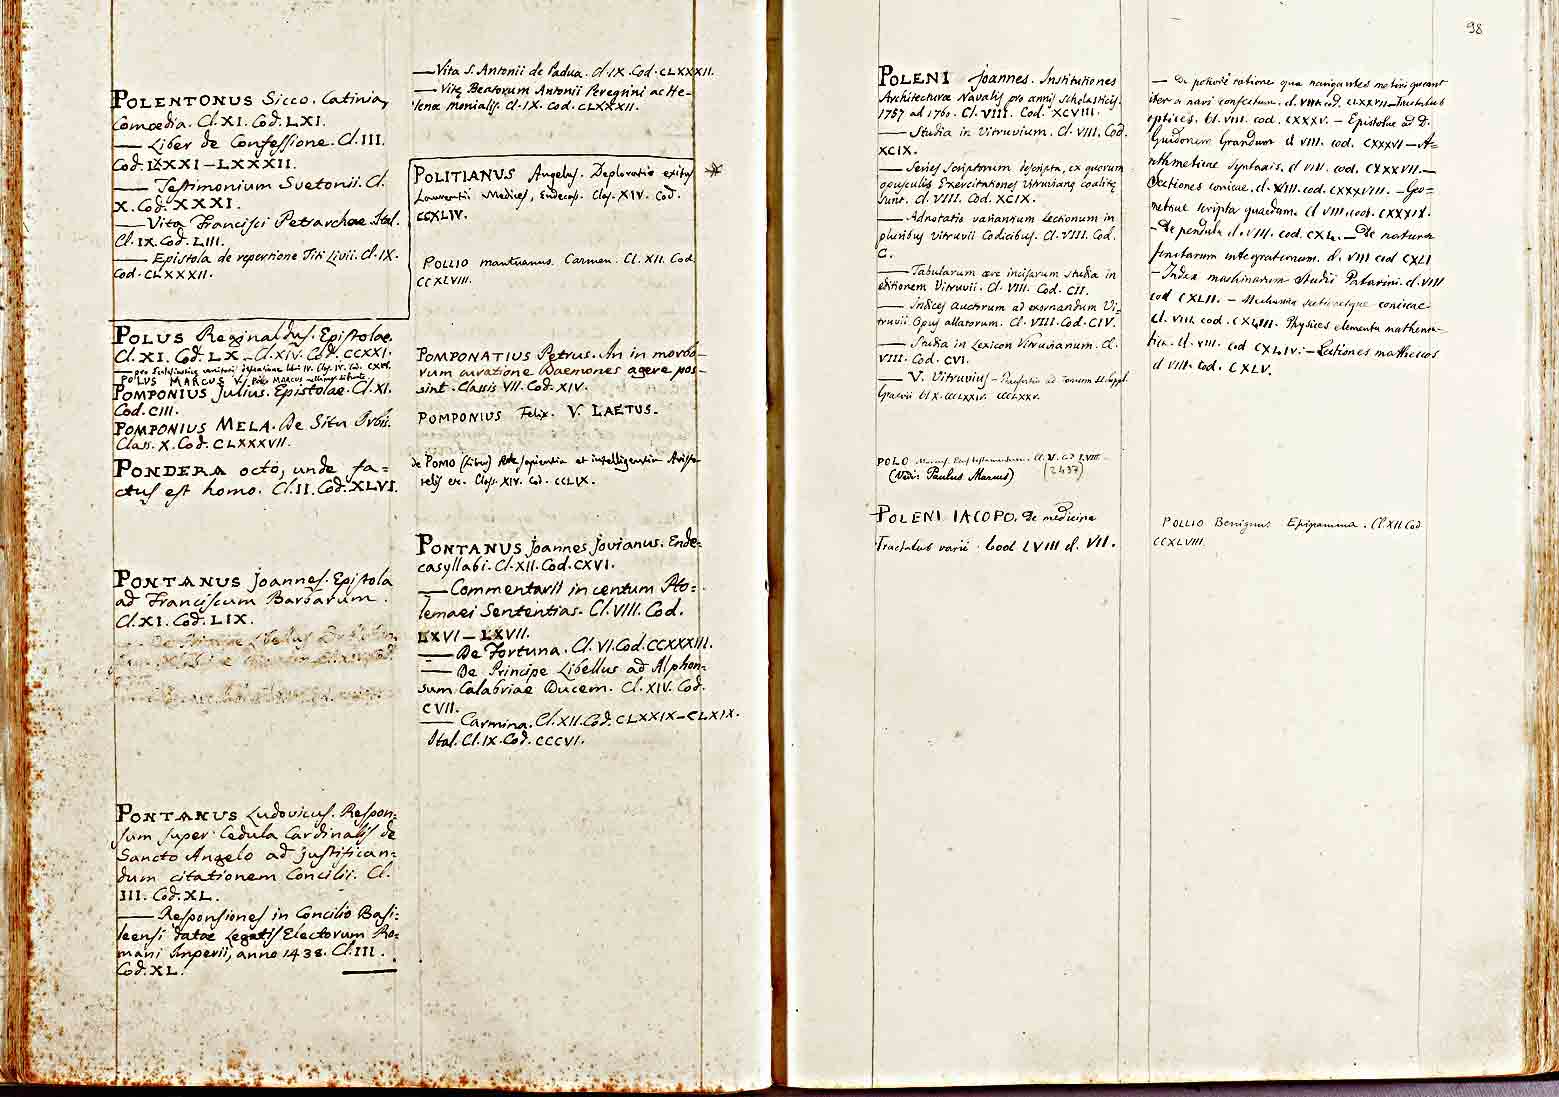 POLENTONUS Sicco. Catinia,
Comœdia. Cl. XI. Cod. LXI.
— Liber de Confessione. Cl. III.
Cod. LXXXI – LXXXII.
— Testimonium Suetonii. Cl.
X. Cod. XXXI.
— Vita Francisci Petrarchae. Ital.
Cl. IX. Cod. LIII.
— Epistola de repertione Titi Livii. Cl. IX.
Cod. CLXXXII.
POLUS Reginaldus. Epistolae.
Cl. XI. Cod. LX – Cl. XIV. Cod. CCXXI.
POLUS MARCUS V.
POMPONIUS Julius. Epistolae. Cl. XI.
Cod. CIII.
POMPONIUS MELA. De Situ Orbis.
Class. X. Cod. CLXXXVII.
PONDERA octo, unde fa=
ctus est homo. Cl. II. Cod. XLVI.
PONTANUS Joannes. Epistola
ad Franciscum Barbarum.
Cl. XI. Cod. LIX.
PONTANUS Ludovicus. Respon=
sum super Cedula Cardinalis de
Sancto Angelo ad justifican=
dum citationem Concilii. Cl.
III. Cod. XL.
— Responsiones in Concilio Basi=
leensi datae Legatis Electorum Ro=
mani Imperii, anno 1438. Cl. III.
Cod. XL.
— Vita S. Antonii de Padua. Cl. IX. Cod. CLXXXII.
— Vitę Beatorum Antonii Peregrini ac He-
lenæ monialis. Cl. IX. Cod. CLXXXII.
POLITIANUS Angelus. Deploratio exitus
Laurentii Medices, Endecas. Clas. XIV. Cod.
CCXLIV.
POLLIO mantuanus. Carmen. Cl. XII. Cod
CCXLVIII.
POMPONATIUS Petrus. An in morbo-
rum curatione Daemones agere pos-
sint. Classis VII. Cod. XIV.
POMPONIUS Felix. V. LAETUS.
de POMO (Liber) sive sapientia et intelligentia Aristo
telis ec. Class. XIV. Cod. CCLIX.
PONTANUS Joannes Jovianus. Ende=
casyllabi. Cl. XII. Cod. CXVI.
— Commentarii in centum Pto=
lemaei Sententias. Cl. VIII. Cod.
LXVI – LXVII.
— De Fortuna. Cl. VI. Cod. CCXXXIII.
— De Principe Libellus ad Alphon=
sum Calabriae Ducem. Cl. XIV. Cod.
CVII.
— Carmina. Cl. XII. Cod. CLXXIX – CLXIX.
Ital. Cl. IX. Cod. CCCVI.
98
POLENI Joannes. Institutiones
Architecturæ Navalis pro annis scholasticis.
1757 ad 1760. Cl. VIII. Cod. XCVIII.
— Studia in Vitruvium. Cl. VIII. Cod.
XCIX.
— Series Scriptorum descripta, ex quorum
opusculis Exercitationes Vitruvianę coalitę
sunt. Cl. VIII. Cod. XCIX.
— Adnotatio variantium lectionum in
pluribus Vitruvii Codicibus. Cl. VIII. Cod.
C.
— Tabularum ære incisarum studia in
editionem Vitruvii. Cl. VIII. Cod. CII.
— Indices auctorum ad exornandum Vi-
truvii Opus allatorum. Cl. VIII. Cod. CIV.
— Studia in Lexicon Vitruvianum. Cl.
VIII. Cod. CVI.
— V. Vitruvius – Praefatio ad Tomum II. Suppl.
Graevii Cl X. CCCLXXIV. CCCLXXV.
POLO Cl. V. Cod LVIII
(Vedi: Paulus Marcus) (2437)
POLENI IACOPO. De medicina
Tractatus varii. Cod LVIII cl. VII.
— De potiore ratione qua navigantes metiri queant
iter a navi confectum. cl. VIII. cod. CLXXVII – Tractatus
optices. Cl. VIII. cod. CXXXV. – Epistolae ad D.
Guidonem Grandum cl VIII. cod. CXXXVI – A=
rithmeticae syntaxis. cl VIII. cod. CXXXVII. –
Sectiones conicae. cl. VIII. cod. CXXXVIII. – Geo=
metricae scripta quaedam. cl VIII. cod. CXXXIX.
– De pendula cl. VIII. cod. CXL. – De natura
finitarum integrationum. cl. VIII cod CXLI
– Index machinarum Studii Patavini. cl. VIII
cod CXLII. – Mechanica sectionesque conicae
cl. VIII. cod. CXLIII. Physices elementa mathema-
tica. cl. VIII. cod CXLIV. – Lectiones matheseos
cl VIII. cod. CXLV.
POLLIO Benignus Epigramma. Cl. XII Cod
CCXLVIII.